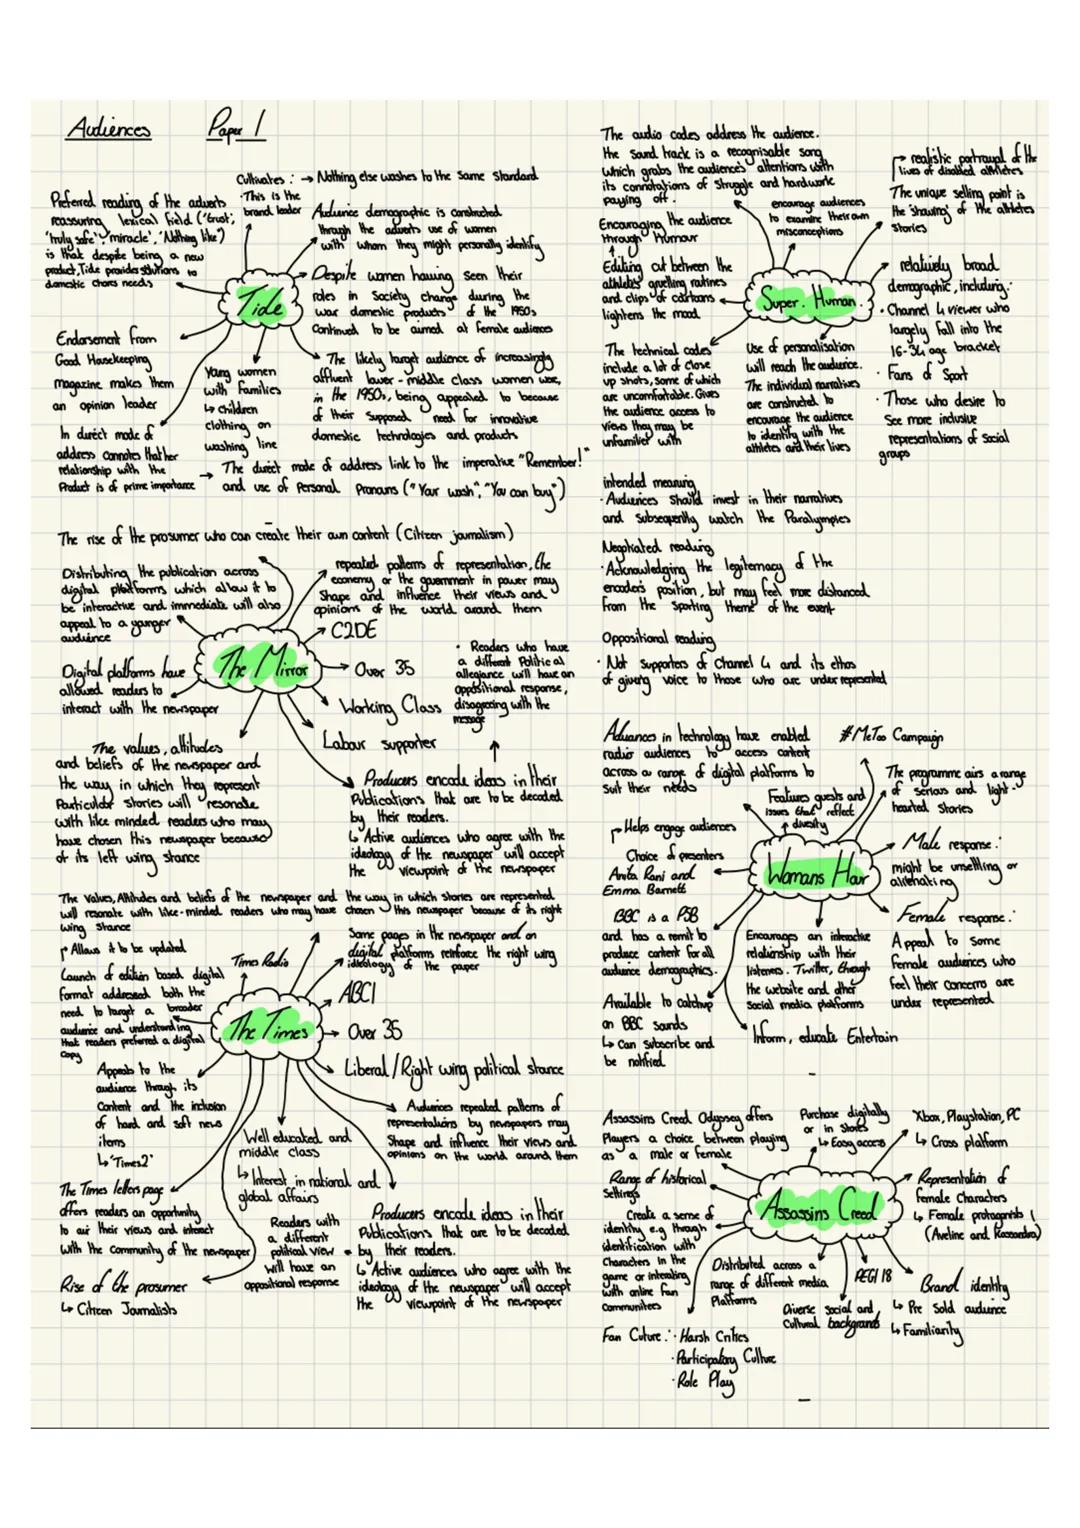 Audiences Paper 1
Cultivates : → Nothing else washes to the same standard
· This is the
brand leader
Preferred reading of the adverts
reassuring lexical field ('trust',
'truly safe', 'miracle', 'Nothing like')
is that despite being a new
product, Tide provides solutions to
domestic chores needs
Audience demographic is constructed
through the adverts use of women
with whom they might personally identify
Tide
Despite women having seen their
roles in Society change during the
war domestic products of the 1950s
Continued to be aimed at female audiences
Endorsement from
Good Housekeeping
magazine makes them
an opinion leader
Young women
with families
↳ children
clothing on
washing line
The likely target audience of increasingly
affluent lower-middle class women were,
in the 1950s, being appealed to because
of their supposed need for innovative
domestic technologies and products
In direct mode of
address connotes that her
relationship with the
Product is of prime importance
→ The direct mode of address link to the imperative "Remember!"
and use of Personal Pronouns ("Your wash", "You can buy")
The rise of the prosumer who can create their own content (Citizen journalism)
Distributing the publication across
digital platforms which allow it to
be interactive and immediate will also
appeal to a younger
audience
repeated patterns of representation, the
economy or the government in power may
Shape and influence their views and
opinions of the world around them
The Mirror
C2DE
Over 35
Working Class
Labour supporter
· Readers who have
a different Political
allegiance will have an
oppositional response,
disagreeing with the
message
Digital platforms have
allowed readers to
interact with the newspaper
The values, attitudes
and beliefs of the newspaper and
the way in which they represent
Particular stories will resonate
with like minded readers who may
have chosen this newspaper because
of its left wing stance
Producers encode ideas in their
Publications that are to be decoded
by their readers.
↳ Active audiences who agree with the
ideology of the newspaper will accept
the viewpoint of the newspaper
The Values, Attitudes and beliefs of the newspaper and the way in which stories are represented
will resonate with like-minded readers who may have chosen this newspaper because of its right
wing stance
Allows it to be updated
Launch of edition based digital
format addressed both the
need to target a broader
audience and understanding
that readers preferred a digital
copy
Times Radio
Same pages in the newspaper and on
digital platforms reinforce the right wing
ideology of the paper
The Times
ABC1
Over 35
Liberal/Right wing political stance
Appeals to the
audience through its
Content and the inclusion
of hard and soft news
items
↳ 'Times2'
Audiences repeated patterns of
representations by newspapers may
Shape and influence their views and
opinions on the world around them
Well educated and
middle class
↳ Interest in national and
global affairs
The Times letters page
offers readers an opportunity
to air their views and interact
with the Community of the newspaper
Readers with
a different
political view
will have an
oppositional response
Producers encode ideas in their
Publications that are to be decoded
by their readers.
↳ Active audiences who agree with the
ideology of the newspaper will accept
the viewpoint of the newspaper
Rise of the prosumer
↳ Citizen Journalists
The audio codes address the audience.
the sound track is a recognisable song
which grabs the audiences' attentions with
its connotations of struggle and hardwork
paying off.
Encouraging the audience
through Humour
Editing cut between the
athletes' gruelling routines
and clips of cartoons
lightens the mood
encourage audiences
to examine their own
misconceptions
→ realistic portrayal of the
lives of disabled athletes
The unique selling point is
the 'showing' of the athletes
stories
Super. Human.
relatively broad
demographic, including:
· Channel 4 viewer who
largely fall into the
16-34 age bracket
· Fans of Sport
· Those who desire to
See more inclusive
representations of Social
groups
The technical codes
include a lot of close
up shots, some of which
are uncomfortable. Gives
the audience access to
views they may be
unfamilier with
Use of personalisation
will reach the audience.
The individual narratives
are constructed to
encourage the audience
to identify with the
athletes and their lives
intended meaning
· Audiences should invest in their narratives
and subsequently watch the Paralympics
Negotiated reading
· Acknowledging the legitemacy of the
encoder's position, but may feel more distanced
from the sporting theme of the event
Oppositional reading
· Not supporters of Channel 4 and its ethos
of giving voice to those who are under represented
Advances in technology have enabled
radio audiences to access content
across a range of digital platforms to
suit their needs
#MeToo Campaign
Features guests and
issues that reflect
diversity
The programme airs a range
of serious and light-
hearted stories
Helps engage audiences
Choice of presenters
Anita Rani and
Emma Barnett
Womans Hour
Male response:
might be unsettling or
alienating
Female response:
Appeal to some
female audiences who
feel their concerns are
under represented
BBC is a PSB
and has a remit to
produce content for all
audience demographics.
Encourages an interactive
relationship with their
listeners. Twitter, through
the website and other
Social media platforms
Available to catchup
on BBC sounds
↳ Can subscribe and
be notified
Inform, educate Entertain
Assassins Creed Odyssey offers
Players a choice between playing
as a male or female
Purchase digitally
or in stores
↳ Easy access
Xbox, Playstation, PC
↳ Cross platform
Range of historical
Settings
Assassins Creed
Representation of
female Characters
↳ Female protagonists
(Aveline and Kassandra)
Create a sense of
identity e.g through
identification with
Characters in the
game or interacting
with online fan
Communitees
Distributed across a
range of different media
Platforms
PEGI 18
Diverse social and
Cultural backgrounds
Brand identity
↳ Pre Sold audience
↳ Familiarity
Fan Cuture: · Harsh Critics
· Participatory Culture
· Role Play